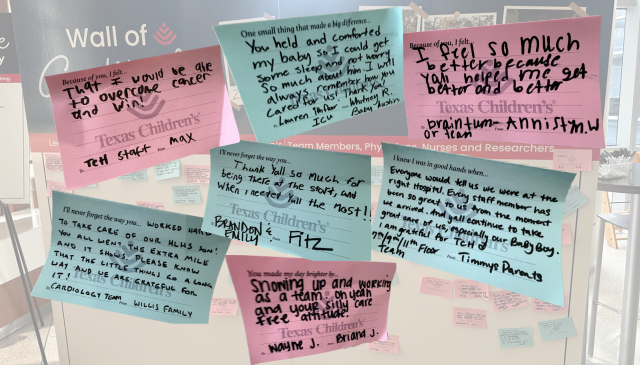 Wall of
Because of you, I felt...
That I would be able
to overcome cancer
and win!
Texas Children's
To TCH Staff From MAX
One small thing that made a big difference...
You held and comforted
my baby so I could get
some sleep and not worry
so much about him I will
always remember how you
cared for us! Thank you
Lauren From Whitney R.
ICU Baby Austin
Because of you, I felt...
I feel so much
better because
yall helped me get
better and better
Texas Children's
braintum- Annist M.W
or team
Team Members, Nurses and Researchers
I'll never forget the way you... WORKED HARD
TO TAKE CARE OF OUR HLHS SON!
YOU ALL WENT THE EXTRA MILE
AND IT SHOWS. PLEASE KNOW
THAT THE LITTLE THINGS GO A LONG
WAY AND WE ARE GRATEFUL FOR
IT!
Texas Children's
CARDIOLOGY TEAM From WILLIS FAMILY
I'll never forget the way you...
Thank Yall so much for
being there at the start, and
when I needed yall the Most!!
Texas Children's
BRANDON &
EMILY From FITZ
I knew I was in good hands when...
Everyone would tell us we were at the
right Hospital. Every staff member has
been so great to us from the moment
we arrived. And yall continue to take
great care of us, especially our Baby Boy.
I am grateful for TCH
11th Floor
Team From Timmys Parents
You made my day brighter by...
Showing up and working
as a team. oh yeah
and your silly care
free attitude!
Texas Children's
To Wayne J. From Briana J.